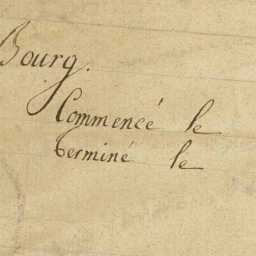 Bourg.
Commencé le
terminé le